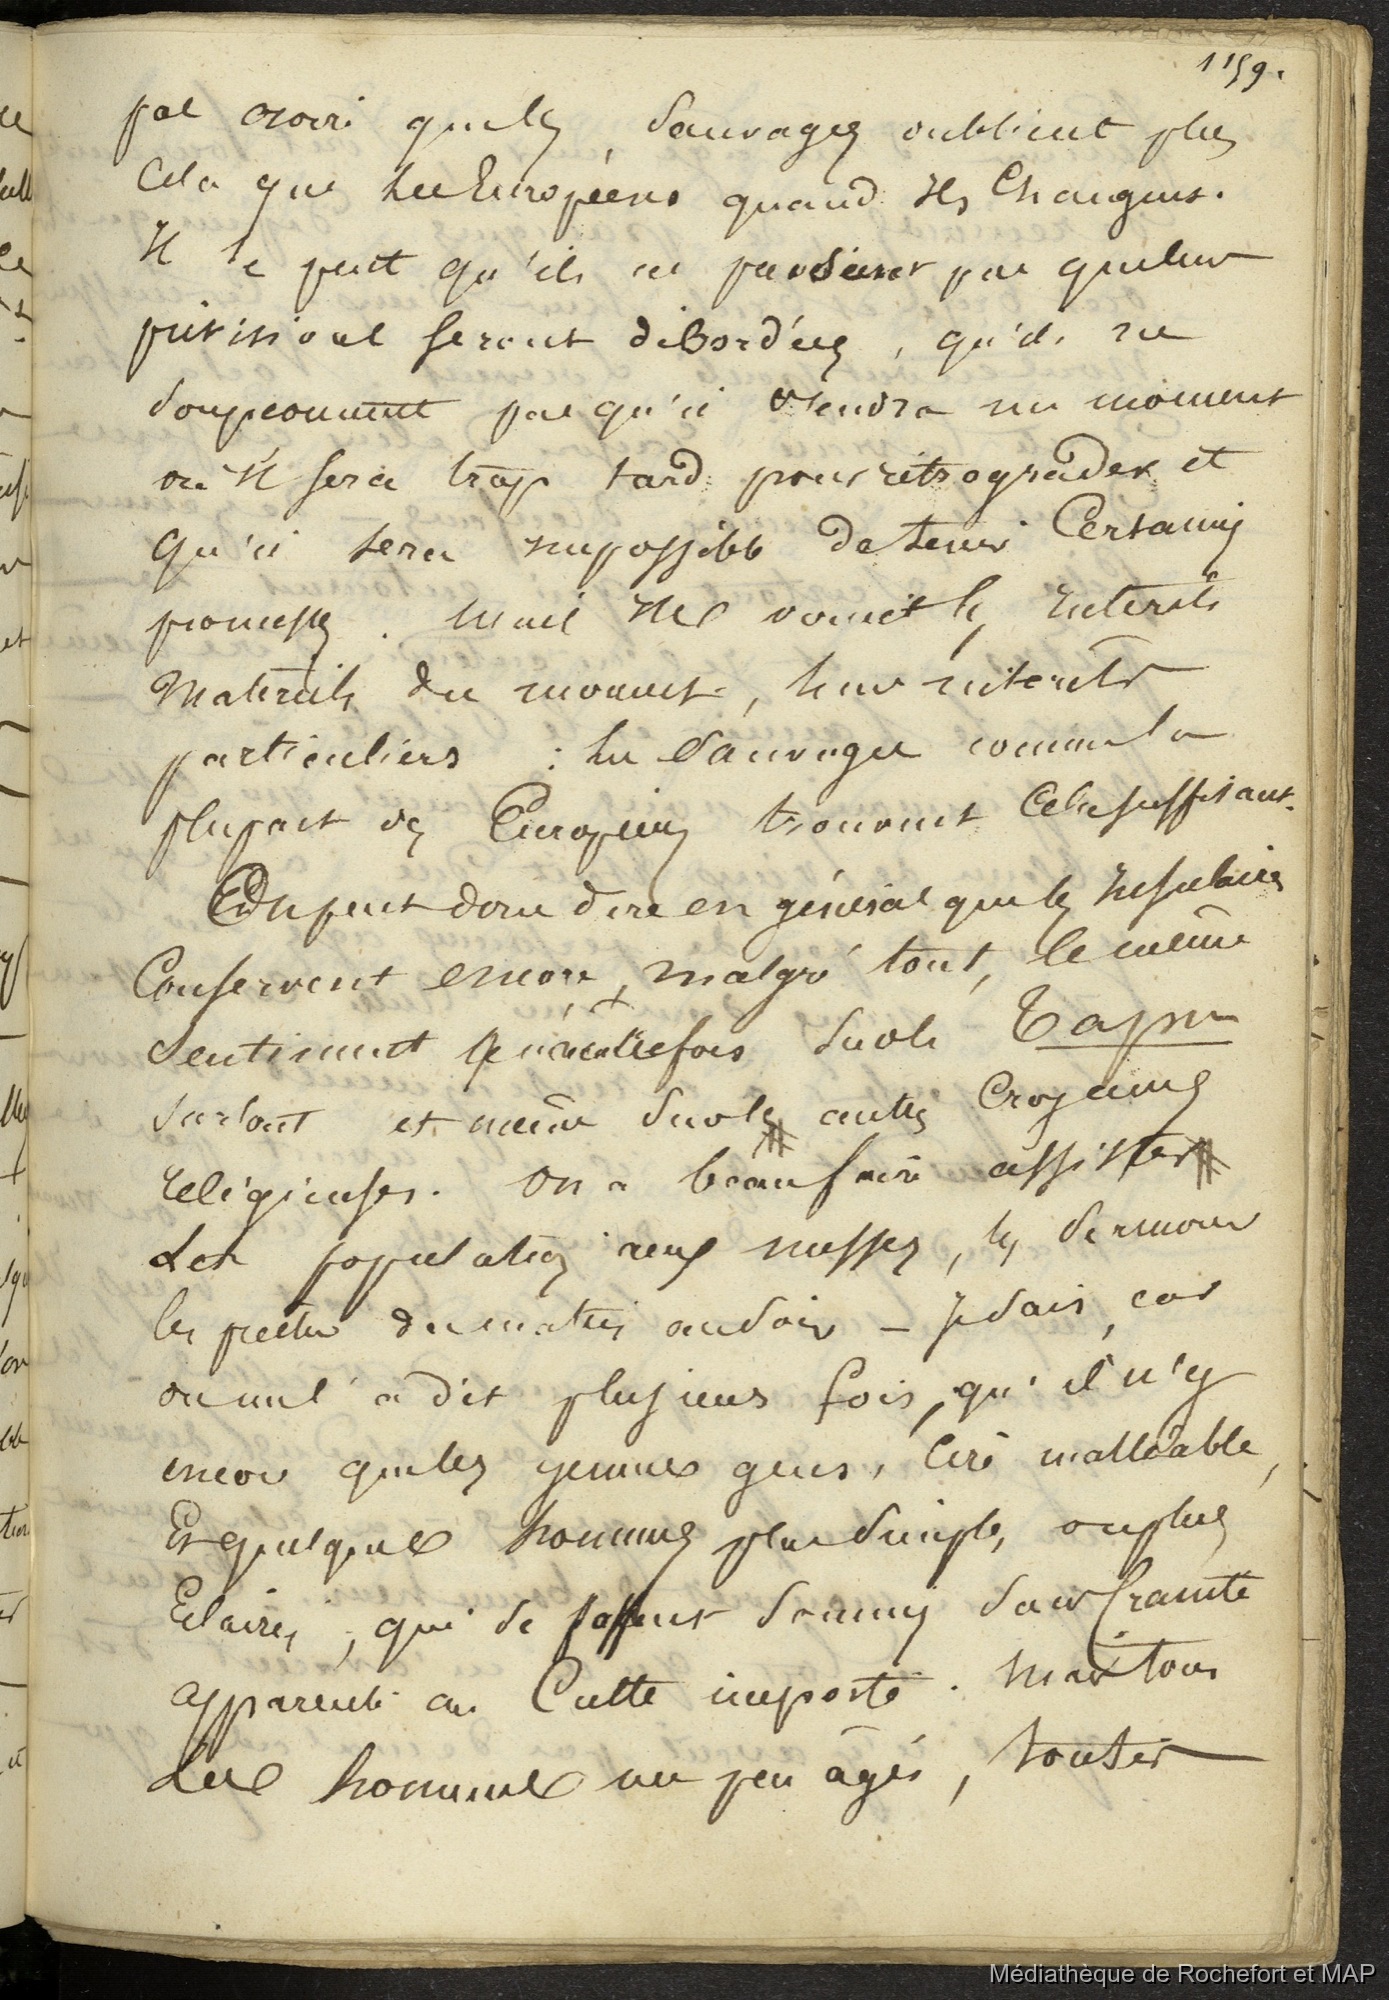 1159.
pas croire que les Sauvages oublient plus
Cela que les Européens quand ils Changent.
Il se peut qu'ils ne pensent pas que leurs
prévisions seront débordées, qu'ils ne
soupçonnent pas qu'il viendra un moment
où il sera trop tard pour rétrograder et
qu'il sera impossible de tenir Certaines
promesses. Mais ils voient les intérêts
Matériels du moment, leurs intérêts
particuliers : les Sauvages comme la
plupart des Européens trouvent Cela suffisant.
On peut donc dire en général que les Insulaires
Conservent encore, malgré tout, le même
sentiment qu'autrefois sur le Tapu
surtout et même sur les autres Croyances
religieuses. On a beau faire assister
les populations aux messes, les sermons
les prières du matin au soir – je sais, car
on me l'a dit plusieurs fois, qu'il n'y
encore que les jeunes gens, Cire malléable,
Et quelques hommes plus simples, ou plus
Eclairés, qui se soient soumis sans Crainte
apparente au Culte importé. Mais tous
Les hommes un peu âgés, toutes
Médiathèque de Rochefort et MAP